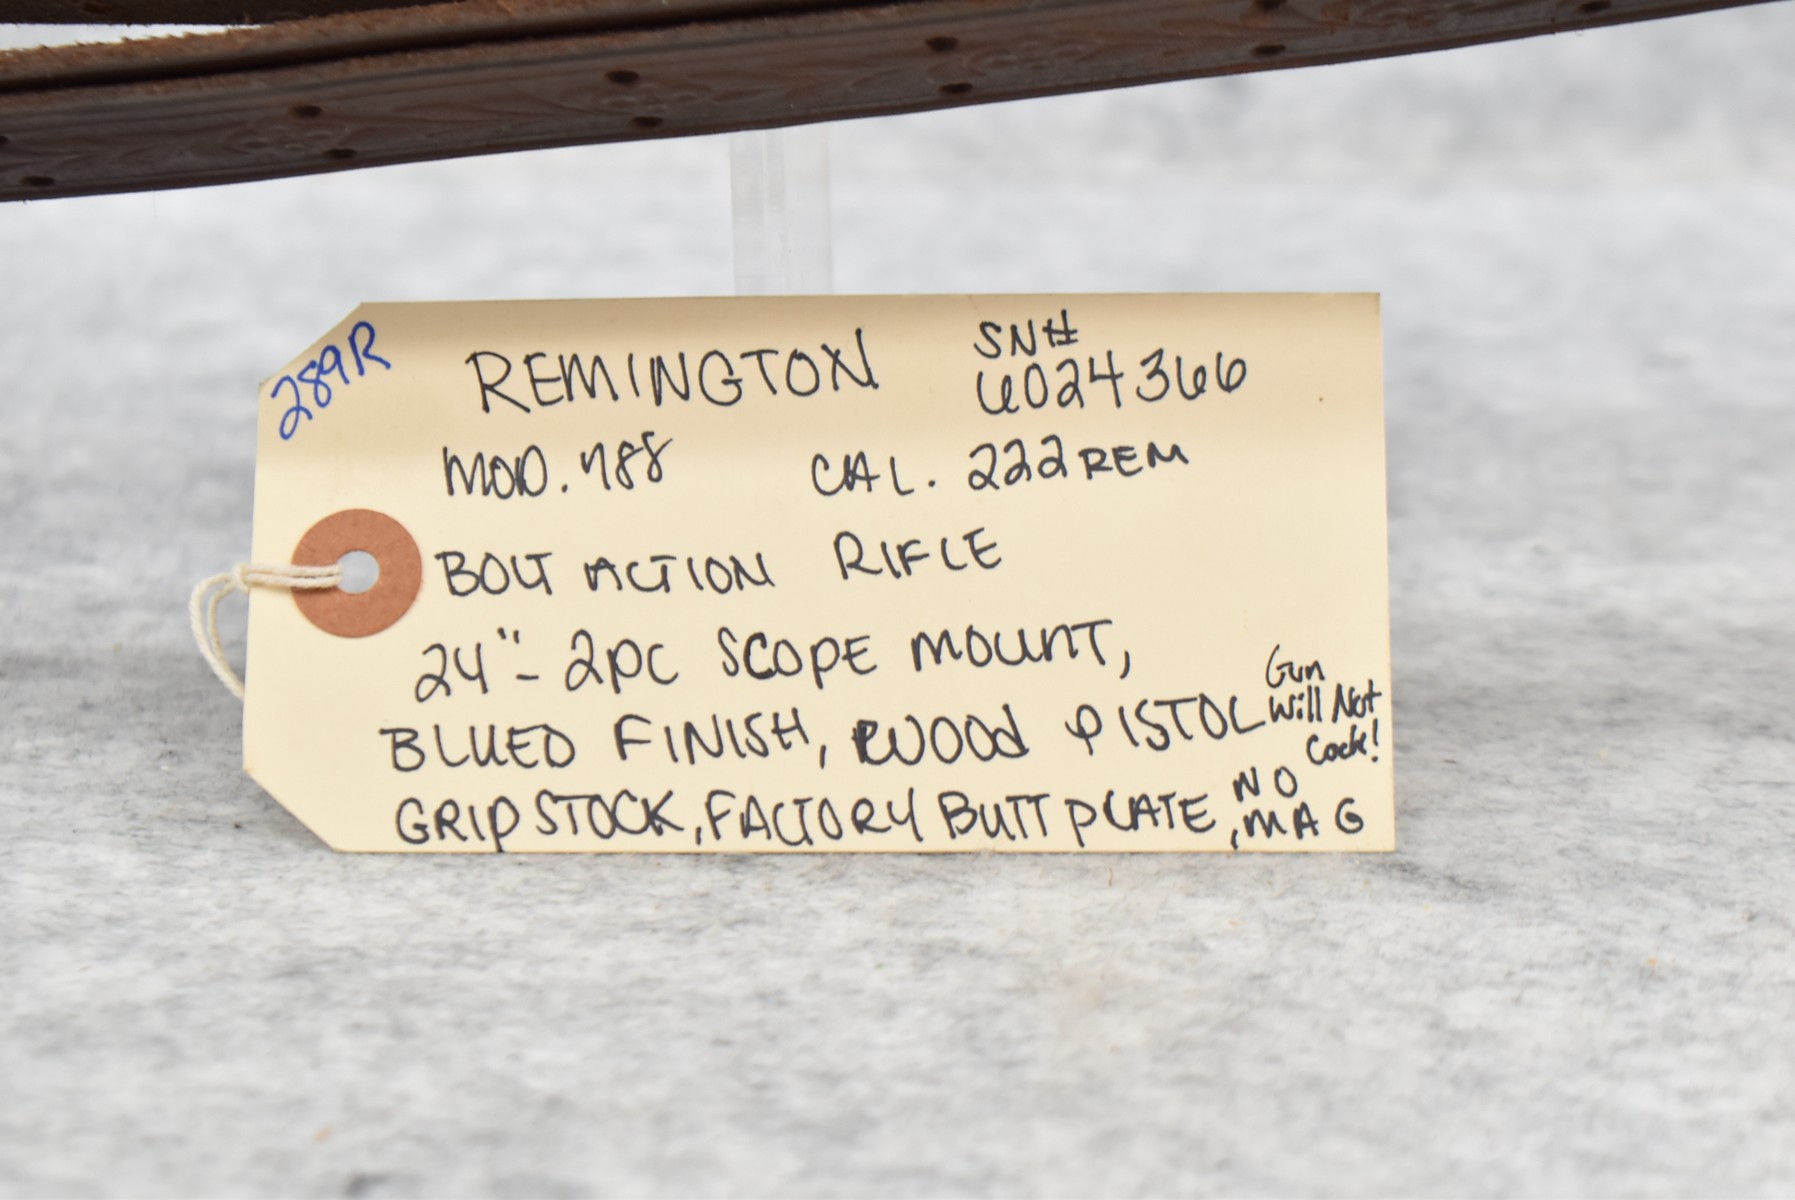 289R
REMINGTON
SN#
6024366
MOD. 788 CAL. 222 REM
BOLT ACTION RIFLE
24"- 2PC SCOPE MOUNT,
BLUED FINISH, WOOD PISTOL
GRIP STOCK, FACTORY BUTT PLATE, NO MAG
Gun
Will Not
Cock!